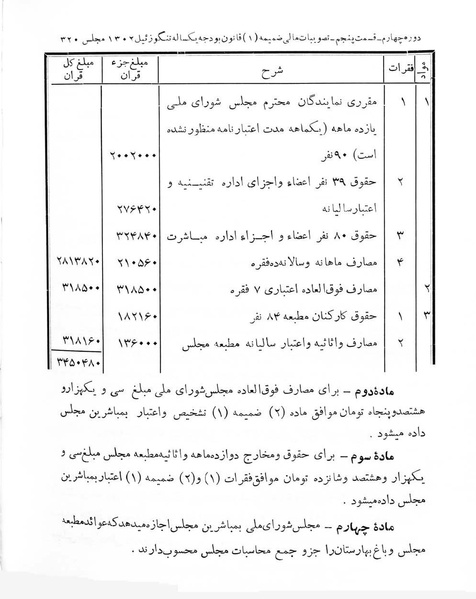 دوره چهارم ـ قسمت پنجم ـ تصویبات مالی ضمیمه (۱) قانون بودجه یکساله تنگوزئیل ۱۳۰۲ مجلس ۳۲۰
مواد فقرات شرح مبلغ جزء قران مبلغ کل قران
۱ ۱ مقرری نمایندگان محترم مجلس شورای ملی
یازده ماهه (یکماهه مدت اعتبارنامه منظور نشده
است) ۹۰ نفر ۲۰۰۲۰۰۰
۲ حقوق ۳۹ نفر اعضاء واجزای اداره تقنینیه و
اعتبار سالیانه ۲۷۶۴۲۰
۳ حقوق ۸۰ نفر اعضاء و اجزاء اداره مباشرت ۳۲۴۸۴۰
۴ مصارف ماهانه وسالانه ده فقره ۲۱۰۵۶۰ ۲۸۱۳۸۲۰
۲ مصارف فوق‌العاده اعتباری ۷ فقره ۳۱۸۵۰۰ ۳۱۸۵۰۰
۳ ۱ حقوق کارکنان مطبعه ۸۴ نفر ۱۸۲۱۶۰
۲ مصارف واثاثیه واعتبار سالیانه مطبعه مجلس ۱۳۶۰۰۰ ۳۱۸۱۶۰
۳۴۵۰۴۸۰
مادهٔ دوم ـ برای مصارف فوق‌العاده مجلس شورای ملی مبلغ سی و یکهزارو
هشتصدوپنجاه تومان موافق ماده (۲) ضمیمه (۱) تشخیص واعتبار بمباشرین مجلس
داده میشود .
مادهٔ سوم ـ برای حقوق ومخارج دوازده‌ماهه واثاثیه‌مطبعه مجلس مبلغ‌سی و
یکهزار وهشتصد وشانزده تومان موافق فقرات (۱) و(۲) ضمیمه (۱) اعتبار بمباشرین
مجلس داده میشود.
مادهٔ چهارم ـ مجلس شورای‌ملی بمباشرین مجلس اجازه میدهد که عوائد مطبعه
مجلس وباغ بهارستان را جزو جمع محاسبات مجلس محسوب دارند .